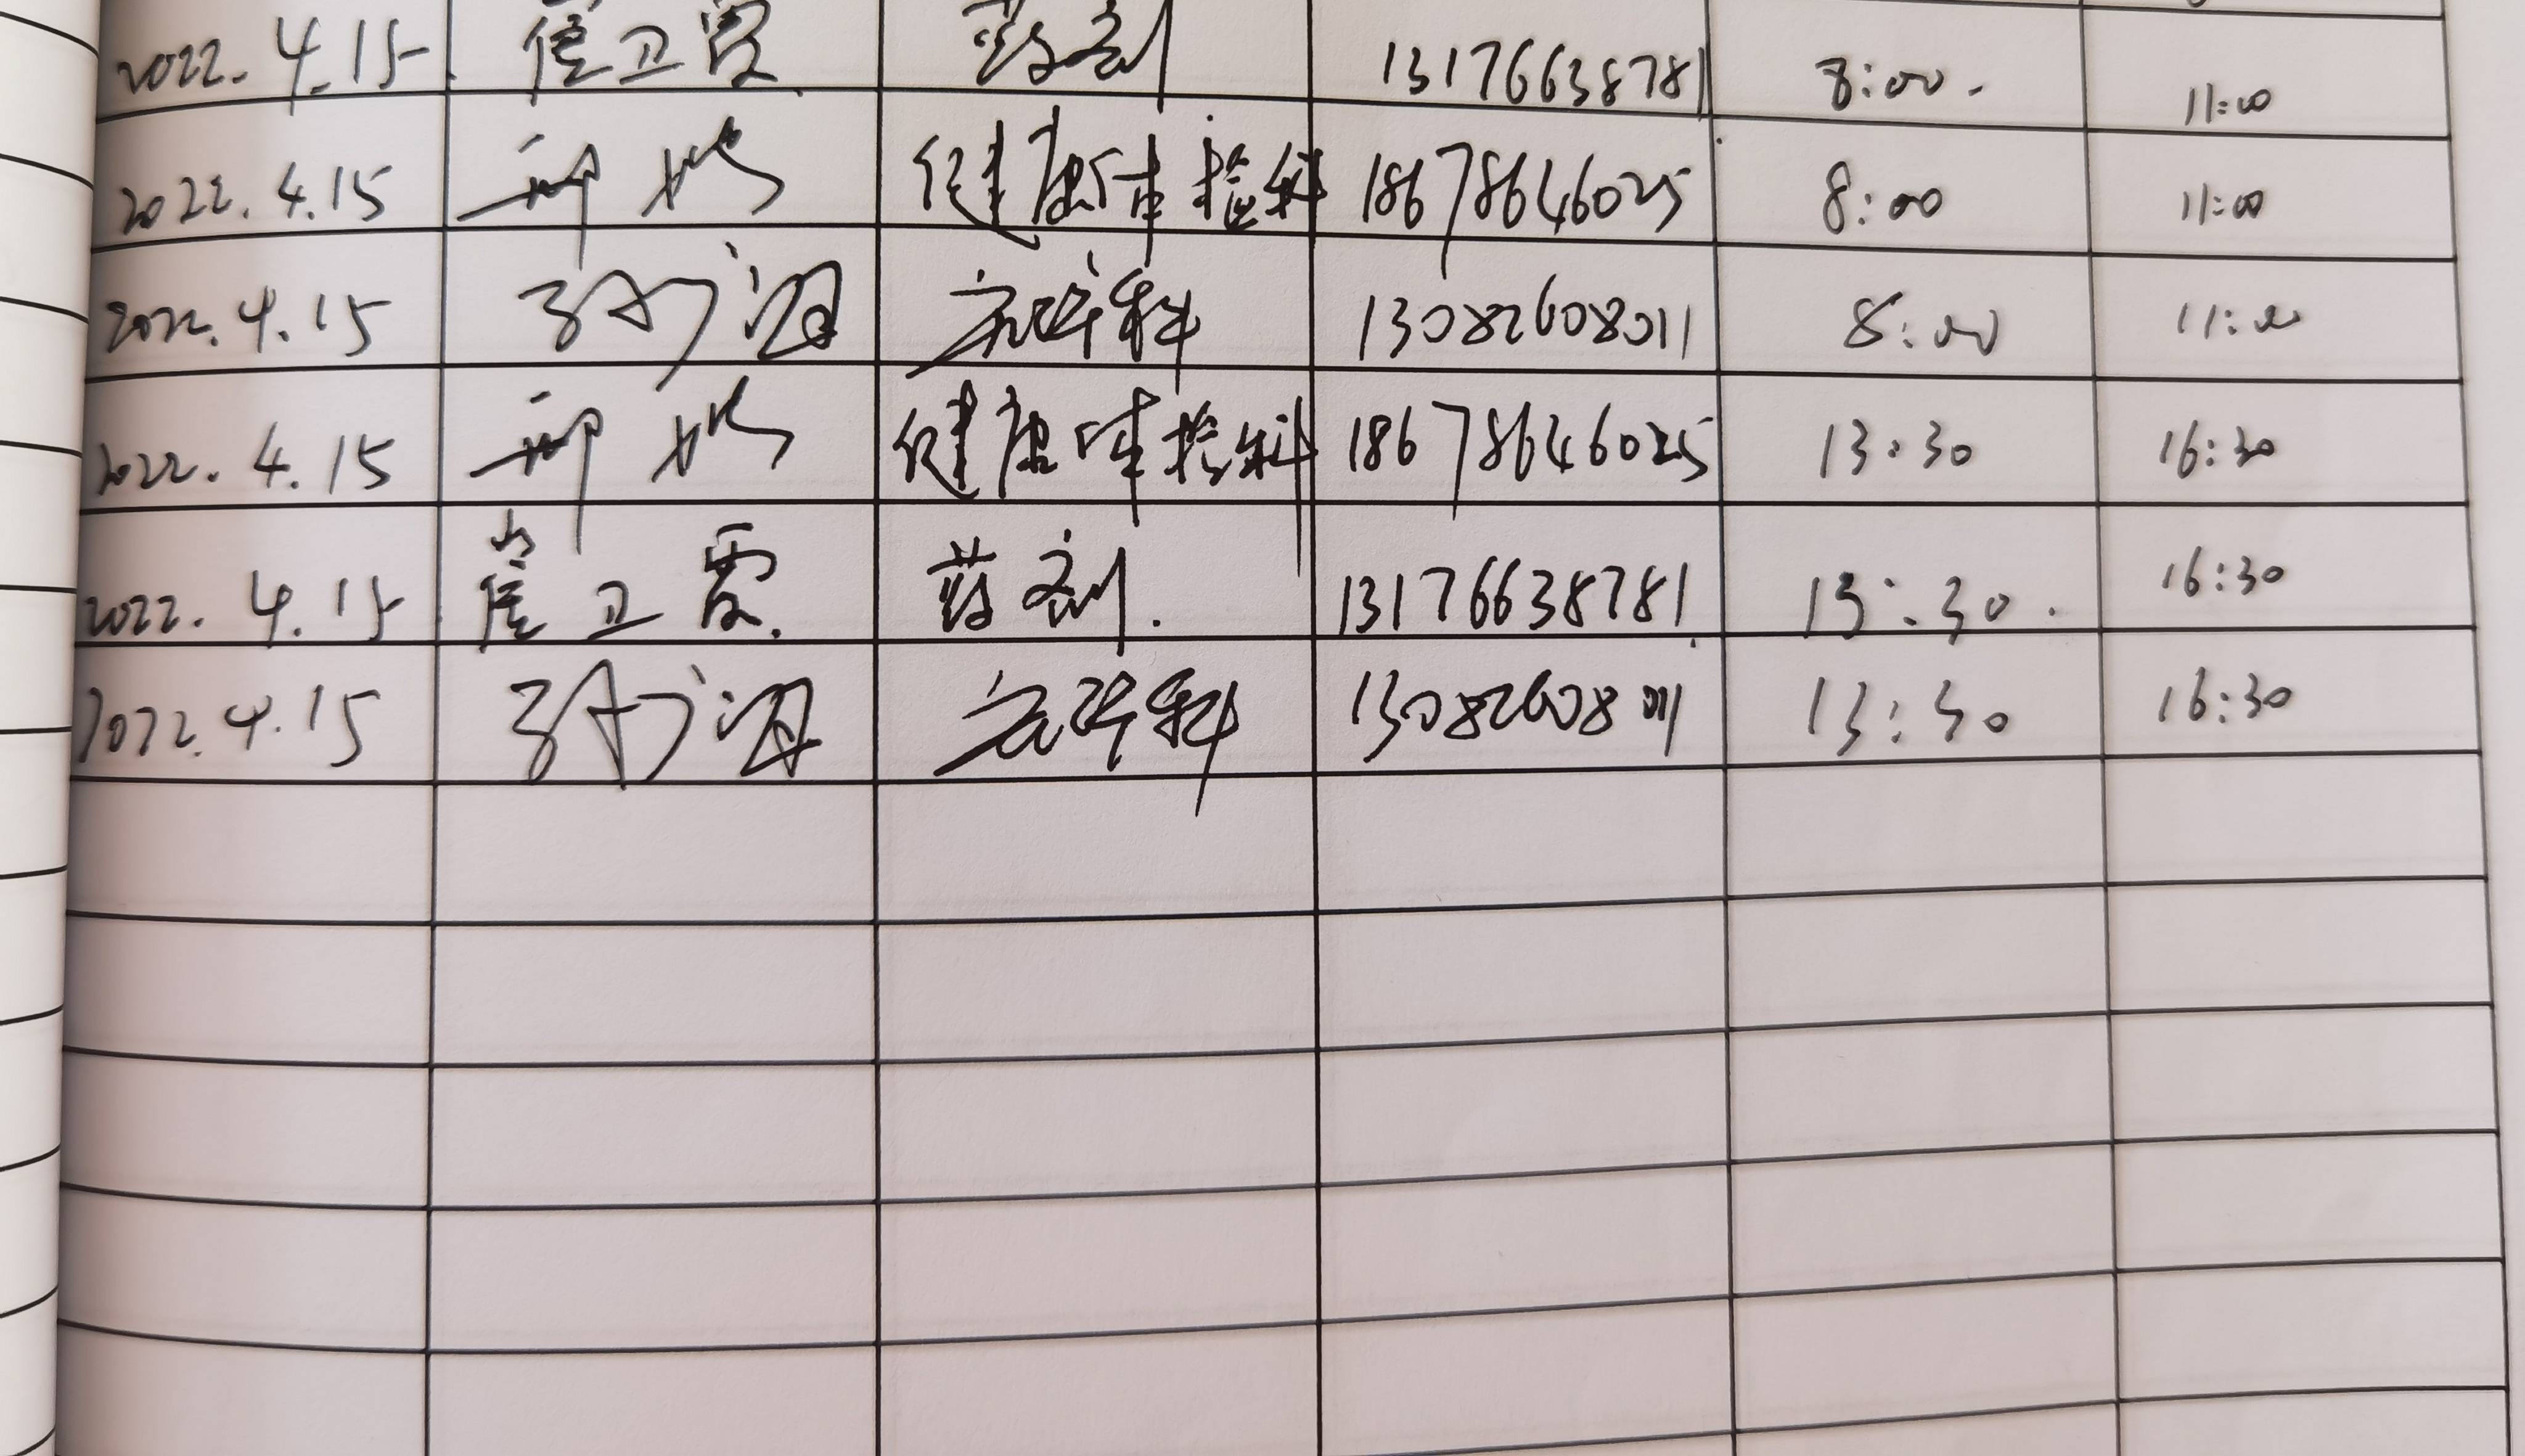 2022.4.15 崔卫霞 药剂 13176638781 8:00 11:00
2022.4.15 健康体检科 18678646025 8:00 11:00
2022.4.15 孙广润 科 13082608011 8:00 11:00
2022.4.15 健康体检科 18678646025 13:30 16:30
2022.4.15 崔卫霞 药剂 13176638781 13:30 16:30
2022.4.15 孙广润 科 13082608011 13:30 16:30